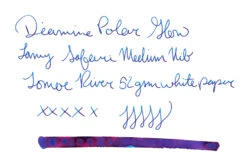 Diamine Polar Glow
Lamy Safari Medium Nib
Tomoe River 52gsm white paper
x x x x x